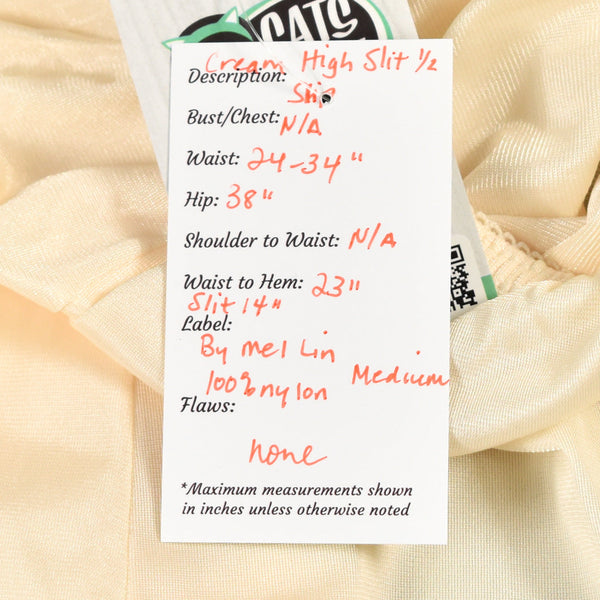 CATS
Cream High Slit 1/2
Description:
Slip
Bust/Chest: N/A
Waist: 24-34"
Hip: 38"
Shoulder to Waist: N/A
Waist to Hem: 23"
Slit 14"
Label:
By mel Lin
100% nylon Medium
Flaws:
none
*Maximum measurements shown
in inches unless otherwise noted